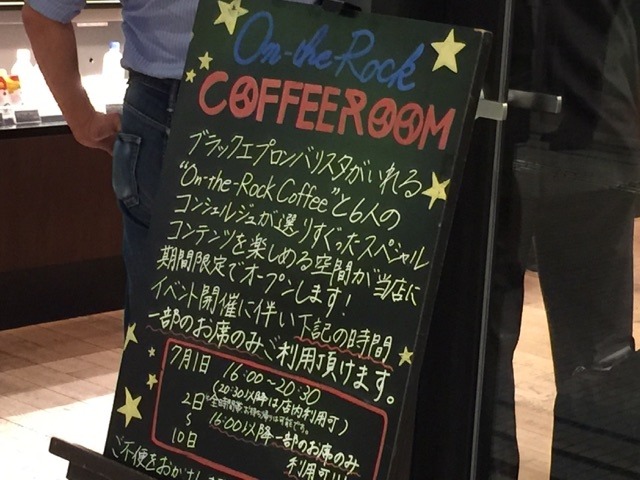 On-the-Rock
COFFEEROOM
ブラックエプロンバリスタがいれる
"On-the-Rock Coffee"と6人の
コンシェルジュが選りすぐったスペシャル
コンテンツを楽しめる空間が当店に
期間限定でオープンします!
イベント開催に伴い下記の時間
一部のお席のみご利用頂けます。
7月1日 16:00~20:30
(20:30以降は店内利用可)
2日
~
10日
16:00以降一部のお席のみ
利用可
ご不便をおかけし